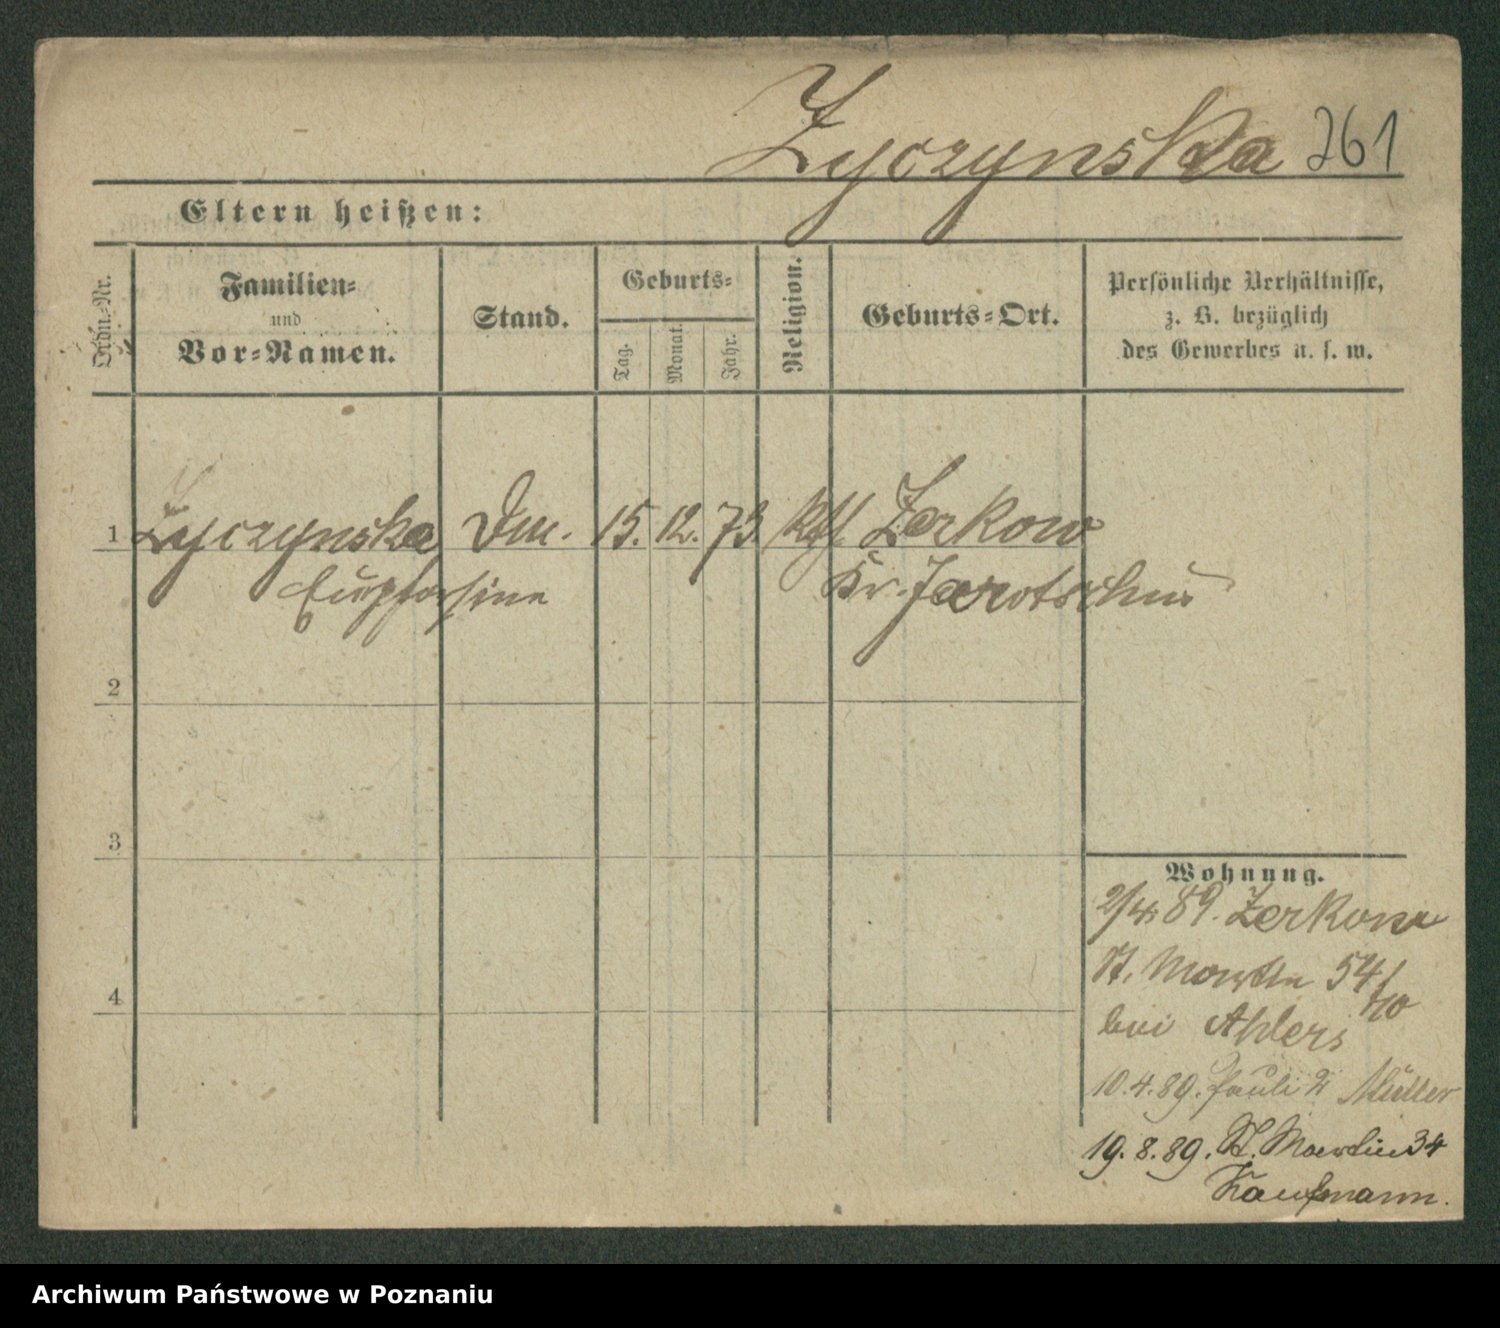 Zyczynska 261
Eltern heißen:
Ordn.-Nr.
Familien-
und
Vor-Namen.
Stand.
Geburts-
Tag.
Monat.
Jahr.
Religion.
Geburts-Ort.
Persönliche Verhältnisse,
z. B. bezüglich
des Gewerbes u. s. w.
1 Zyczynska 15. 12. 73. Kth. Zerkow
Euphrosine Kr. Jarotschin
2
3
4
Wohnung.
2/4. 89. Zerkow
St. Martin 54/
bei Ahlers
10.4.89. Pauli 2 Müller
19.8.89. St. Martin 34
Kaufmann.
Archiwum Państwowe w Poznaniu